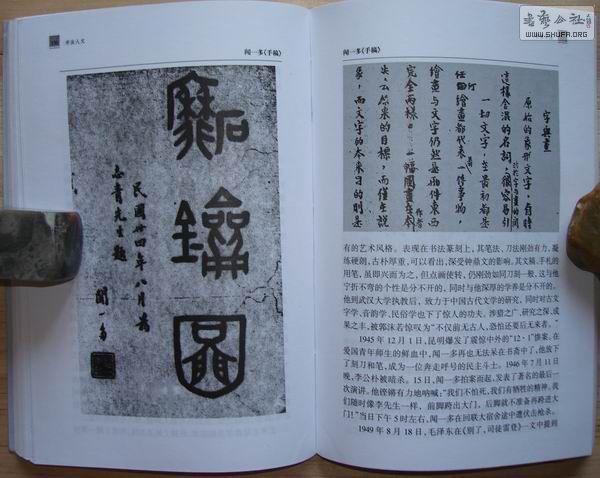 闻一多《手稿》
民國廿四年八月為
志青先生題
聞一多
闻一多《手稿》
字與畫
原始的象形文字，有時
這樣含混的名詞，很容易引
一切文字，在最初都是
繪畫都代表一件事物，
繪畫與文字仍然是兩件東西
完全兩樣。一幅圖畫在作者
的目標，而僅是說
象，而文字的本來目的則是
有的艺术风格。表现在书法篆刻上，其笔法、刀法刚劲有力，凝
练硬朗，古朴厚重，可以看出，深受钟鼎文的影响。其文稿、手札的
用笔，虽即兴而为之，但点画使转，仍刚劲如同刀刻一般，这与他
宁折不弯的个性是分不开的，同时与他深厚的学养是分不开的。
他到武汉大学执教后，致力于中国古代文学的研究，同时对古文
字学、音韵学、民俗学也下了惊人的功夫。涉猎之广、研究之深、成
果之丰，被郭沫若惊叹为“不仅前无古人，恐怕还要后无来者。”
1945年12月1日，昆明爆发了震惊中外的“12·1”惨案。在
爱国青年师生的鲜血中，闻一多再也无法呆在书斋中了，他放下
了刻刀和笔，成为一位奔走呼号的民主斗士。1946年7月11日
晚，李公朴被暗杀。15日，闻一多拍案而起，发表了著名的最后一
次演讲。他铿锵有力地呐喊：“我们不怕死，我们有牺牲的精神，我
们随时像李先生一样，前脚跨出大门，后脚就不准备再跨进大
门！”当日下午5时左右，闻一多在回联大宿舍途中遭伏击枪杀。
1949年8月18日，毛泽东在《别了，司徒雷登》一文中提到
书艺公社
WWW.SHUFA.ORG